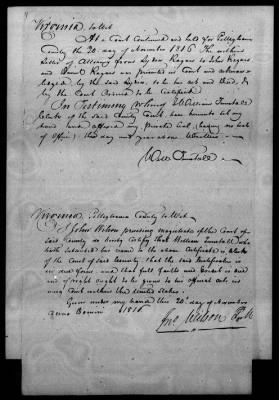 Virginia to wit
At a Court Continued and held for Pittsylvania
County the 20 day of November 1816 The within
Letter of Attorney from Lydia Ragan to John Ragan
and Daniel Ragan was presented in Court and acknow-
ledged by the said Lydia, to be her act and Deed, &
by the Court Ordered to be Certified
In Testimony Whereof I William Tunstall
Clerk of the said County Court have hereunto set my
hand and affixed my private Seal (having no seal
of Office) this day and year above Written.
Will Tunstall
Virginia, Pittsylvania County to wit
I John Wilson presiding magistrate of the Court of
said County do hereby Certify that William Tunstall who
hath subscribed his name to the above Certificate is Clerk
of the Court of said County, that the said Certificate is
in due form, and that full faith and Credit is due
and of right ought to be given to his official acts in
any Court within the United States.
Given under my hand this 20th day of November
Anno Domini 1816
Jno Wilson